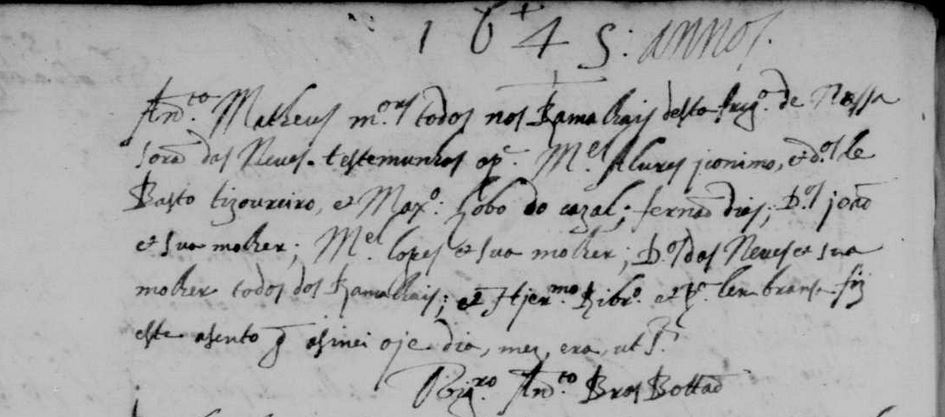 1645: annos.
Antº. Matheus mºres todos nos Ramalhais desta freg.ª de Nossa
Sorã das Neves. testemunhas o p.e M.el Alvres jeronimo, et d.os le
Basto tizoureiro, et Max.º Lobo do cazal; fernaõ dias; D.os joaõ
et sua molher; M.el lopes et sua molher; D.os das Neves et sua
molher todos dos Ramalhais; et Hjer.mo Ribr.º et p.ª lembransa fiz
este asento q̃ asinei oje dia, mez, era, ut s.ª
Antº. Bras Bottaõ